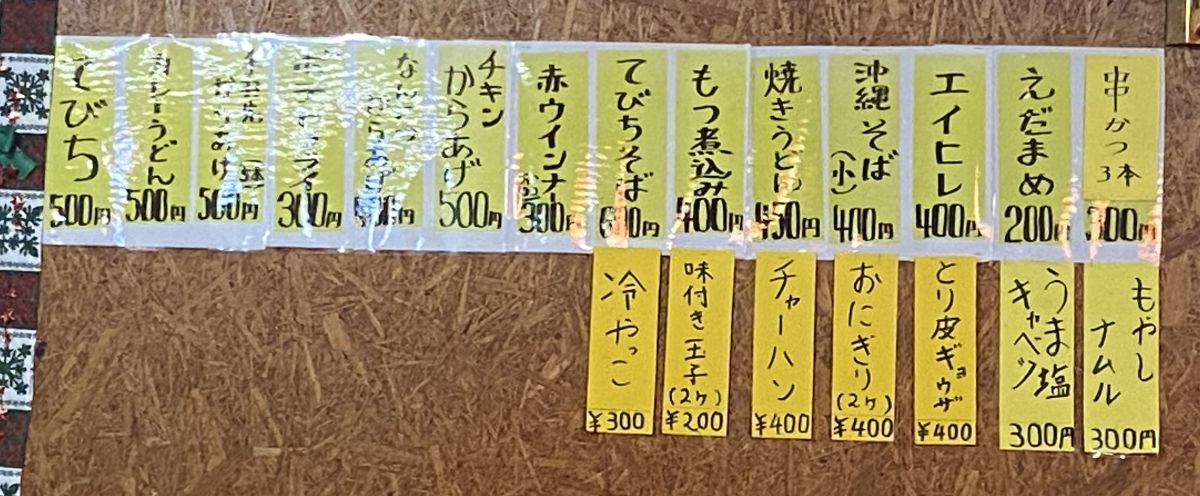 串かつ
3本
300円
えだまめ
200円
エイヒレ
400円
沖縄そば
(小)
410円
焼きうどん
450円
もつ煮込み
400円
てびちそば
600円
赤ウインナー
300円
チキン
からあげ
500円
なんこつ
からあげ
300円
うどん
500円
500円
てびち
500円
もやし
ナムル
300円
うま塩
キャベツ
300円
とり皮ギョウザ
¥400
おにぎり
(2ケ)
¥400
チャーハン
¥400
味付き玉子
(2ケ)
¥200
冷やっこ
¥300